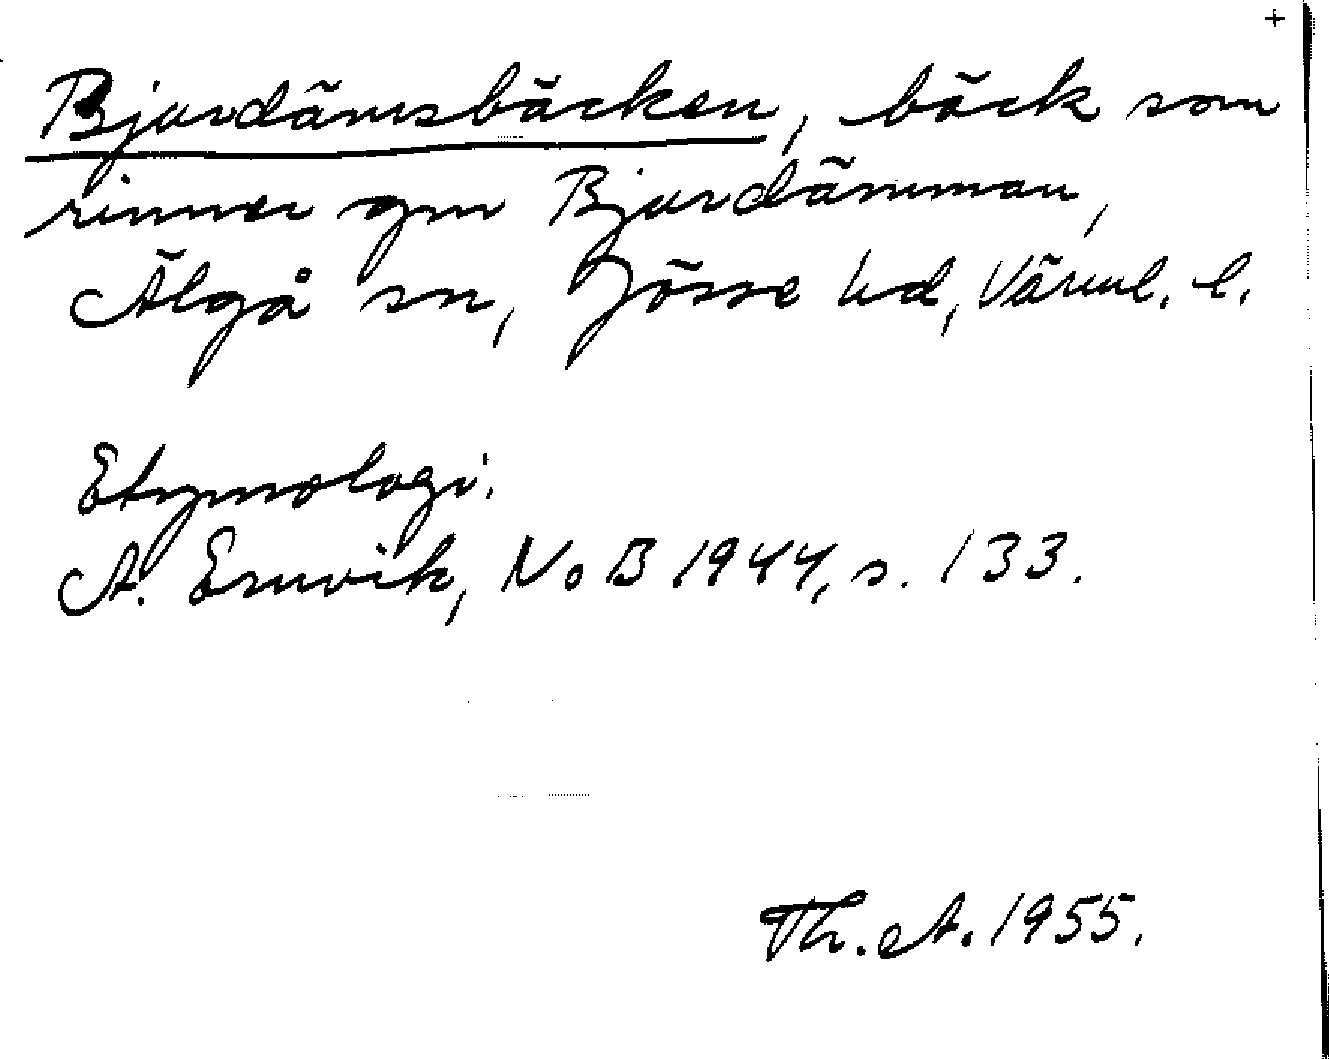 +
Bjurdämsbäcken, bäck som
rinner gm Bjurdämman,
Älgå sn, Jösse hd, Värml. l.
Etymologi.
A. Ernvik, NoB 1944, s. 133.
Th. A. 1955.